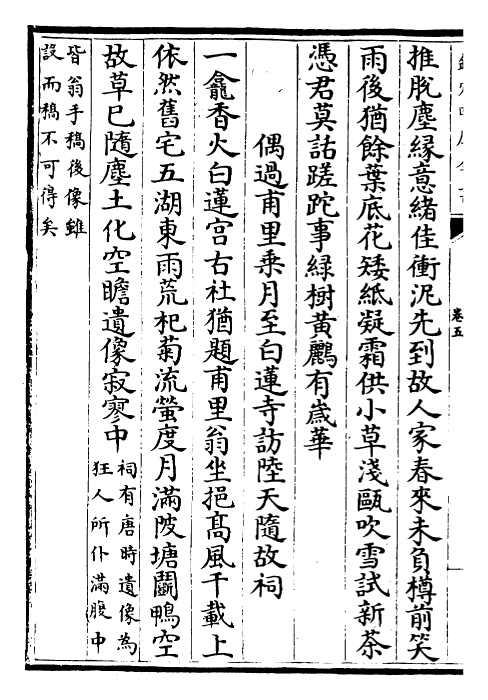 卷五
推脫塵緣意緒佳衝泥先到故人家春來未負樽前笑
雨後猶餘葉底花矮紙凝霜供小草淺甌吹雪試新茶
憑君莫話蹉跎事綠樹黃鸝有歲華
偶過甫里乘月至白蓮寺訪陸天隨故祠
一龕香火白蓮宮古社猶題甫里翁坐挹高風千載上
依然舊宅五湖東雨荒杞菊流螢度月滿陂塘鬬鴨空
故草已隨塵土化空瞻遺像寂寥中
祠有唐時遺像為
狂人所仆滿腹中
皆翁手稿後像雖
設而稿不可得矣